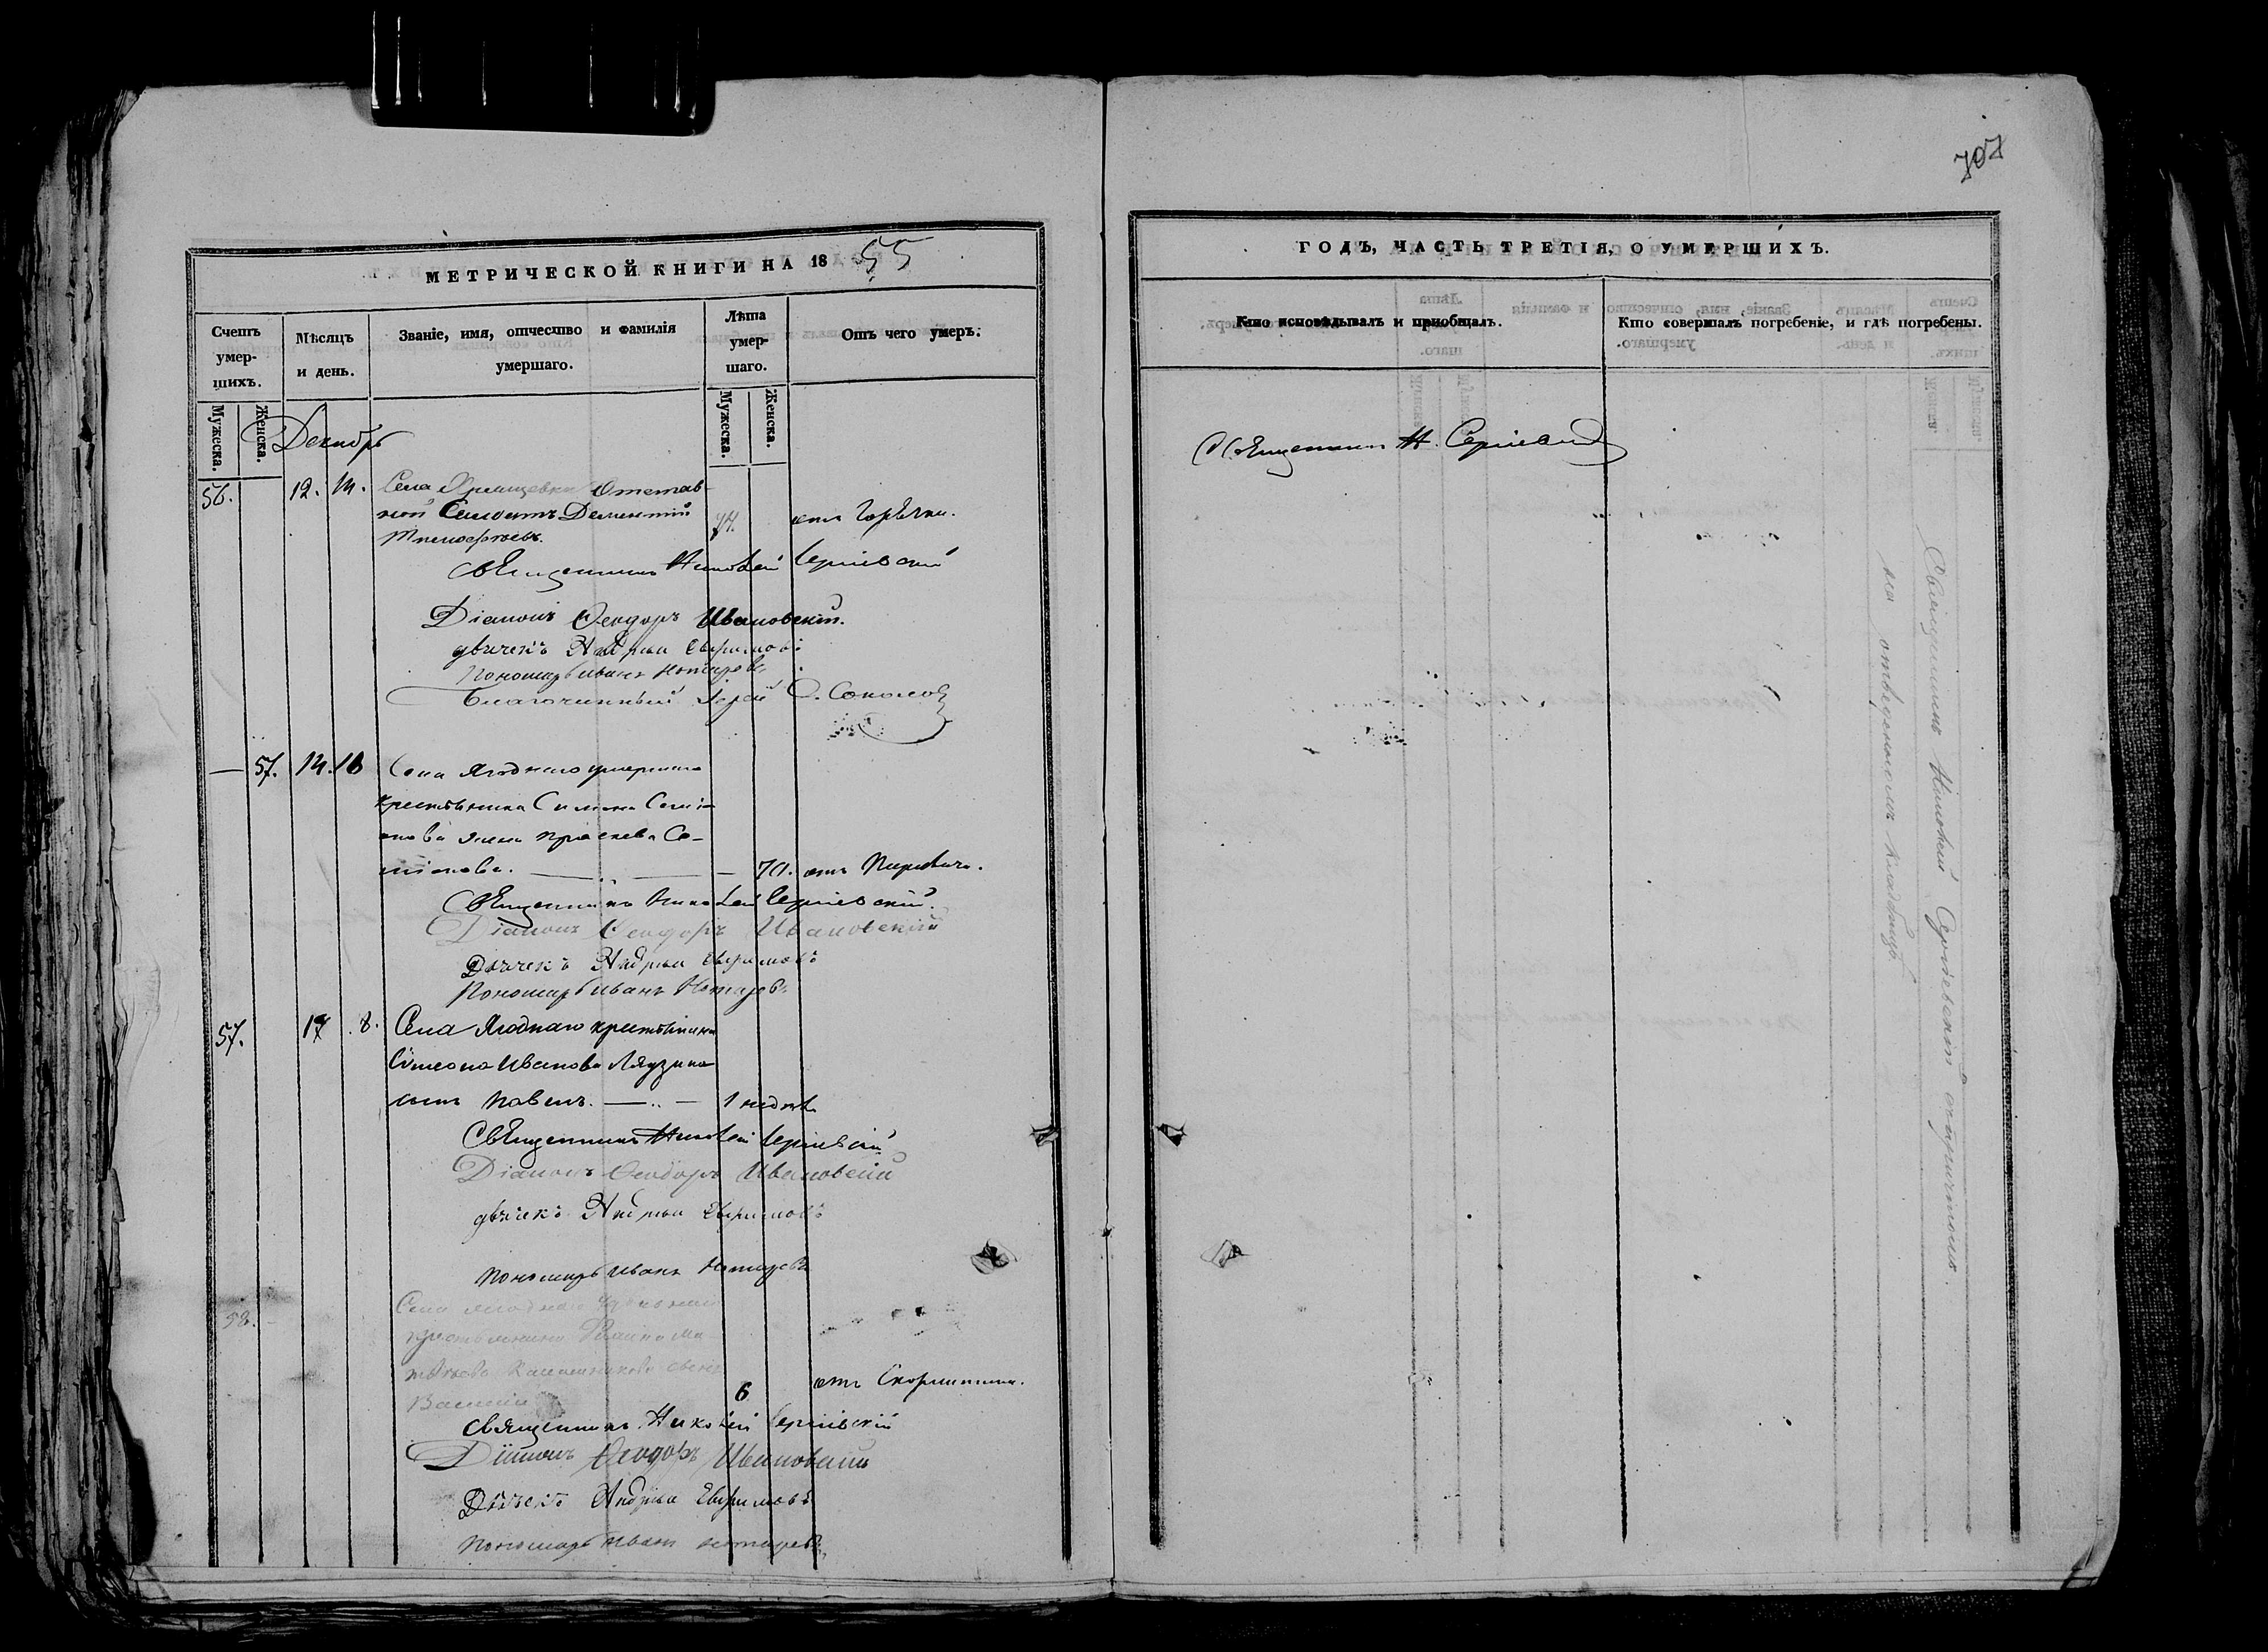 707
МЕТРИЧЕСКОЙ КНИГИ НА 1855
Счетъ умер-шихъ.
Мѣсяцъ и день.
Званіе, имя, отчество и фамилія умершаго.
Лѣта умер-шаго.
Отъ чего умеръ.
Мужеска.
Женска.
Мужеска.
Женска.
Декабрь
56. 12. 14. Села Отстав-
ной Солдатъ Дементій
74. отъ Горячки.
Священникъ Николай Сергіевскій
Діаконъ Ѳеодоръ Ивановскій.
дьячекъ Андрей Евфимовъ
Пономарь Иванъ Нотаревъ
Благочинный Іерей С. Соколовъ
— 57. 14. 16 Села Ягоднаго умершаго
крестьянина Симеона Семі-
онова жена Праскева Се-
міонова. — 70. отъ
Священникъ Николай Сергіевскій.
Діаконъ Ѳеодоръ Ивановскій
Дьячекъ Андрей Евфимовъ
Пономарь Иванъ Нотаревъ
57. 17 8. Села Ягоднаго крестьянина
Симеона Иванова Лядзина
сынъ Павелъ. — 1 недѣл.
Священникъ Николай Сергіевскій
Діаконъ Ѳеодоръ Ивановскій
дьячекъ Андрей Евфимовъ
Пономарь Иванъ Нотаревъ
58. Села Ягоднаго
крестьянина
сынъ
Василій 6 отъ
Священникъ Николай Сергіевскій
Діаконъ Ѳеодоръ Ивановскій
Дьячекъ Андрей Евфимовъ
Пономарь Иванъ Нотаревъ
ГОДЪ, ЧАСТЬ ТРЕТІЯ, О УМЕРШИХЪ.
Кто исповѣдывалъ и пріобщалъ.
Кто совершалъ погребеніе, и гдѣ погребены.
Священникъ Н. Сергіевскій
Священникъ Николай Сергіевскій съ причтомъ.
на отведенномъ кладбищѣ